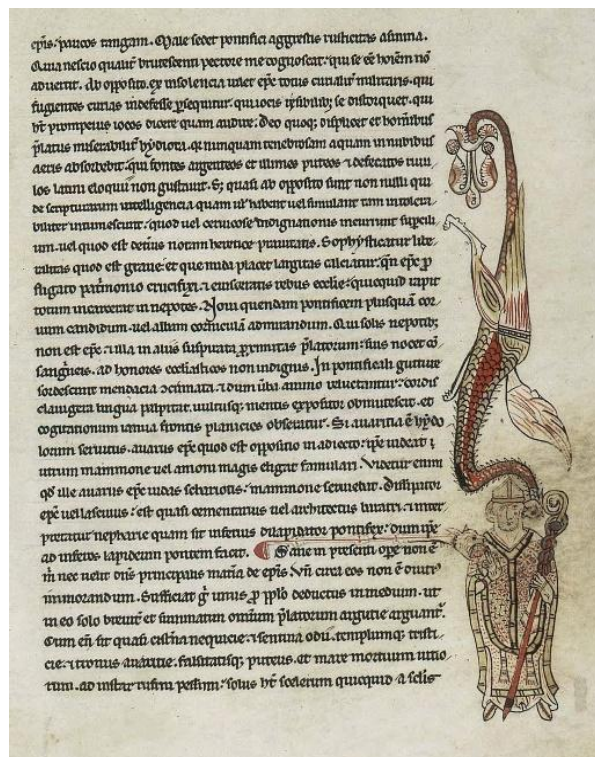 ep̄is. paucos tangam. Male sedet pontifici agrestis rusticitas asinina.
Quia nescio qualit̄ brutescenti pectore me cognoscat. qui se eē hoīem nō
aduertit. Ab opposito. ex insolencia ualet ep̄c totus curialit̄ militaris. qui
fugientes curias indefesse ꝑsequitur. qui iocis
h̄t promptius iocos dicere quam audire. Deo quoq; displicet et hominibus
p̄latus miserabilit̄ hydiota. qui nunquam tenebrosam aquam in nubibus
aeris absorbebit. qui fontes argenteos et limites puteos ⁊ defecatos riuu
los latini eloquii non gustauit. S; quasi ab opposito sunt non nulli qui
de scripturarum intelligencia quam uł habent uel simulant tam intolera
biliter intumescunt. quod uel ceruicose indignationis incurrunt supercili
um. uel quod est deterius notam heretice prauitatis. Sophysticatur libe
ralitas quod est graue. et que nuda placet largitas calciatur. qn̄ ep̄c ꝓ
fugato patrimonio crucifixi. ⁊ euisceratis rebus ecclīe. quicquid rapit
totum incathezat in nepotes. Noui quendam pontificem plusquā cor
uum candidum. uel album admirandum. Qui solis nepotib;
non est ep̄c. ⁊ illa in aliis suspirata ꝓximitas p̄latorum. suis nocet cō
sangīneis. ad honores ecclesiasticos non indignis. In pontificali gutture
sordescunt mendacia dum
clauigera lingua palpitat. uultusq; mentis expositor obmutescit. et
cogitationum ianua frontis planicies obseratur. Si auaritia ē ydo
lorum seruitus. auarus ep̄c quod est oppositio in adiecto. ip̄e uideat
utrum mammone uel amori magis eligat famulari. Videtur enim
qd̄ ille auarus ep̄c iudas schariotis. mammone seruiebat. Dissipator
ep̄c uel lasciuus. est quasi cementarius uel architectus baratri. ⁊ inter
pretatur nepharie quam sit infertus dilapidator pontifex. dum ip̄e
ad inferos lapideum pontem facit. Sane in presenti oꝑe non ē
m̄ nec uelit dn̄s principalis materia de ep̄is. Vn̄ circa eos non ē diuti⁹
immorandum. Sufficiat g̊ unus ꝓ pplō deductus in medium. ut
in eo solo breuit̄ et summatim omnium p̄latorum argutie arguant̄.
Cum en̄ sit quasi cist̄na nequicie. ⁊ sentina odii. templumq; tristi
cie. ⁊ tronus auaritie. falsitatisq; puteus. et mare mortuum uitio
rum. ad instar rusini pessimi. solus h̄t scelerum quicquid a solis